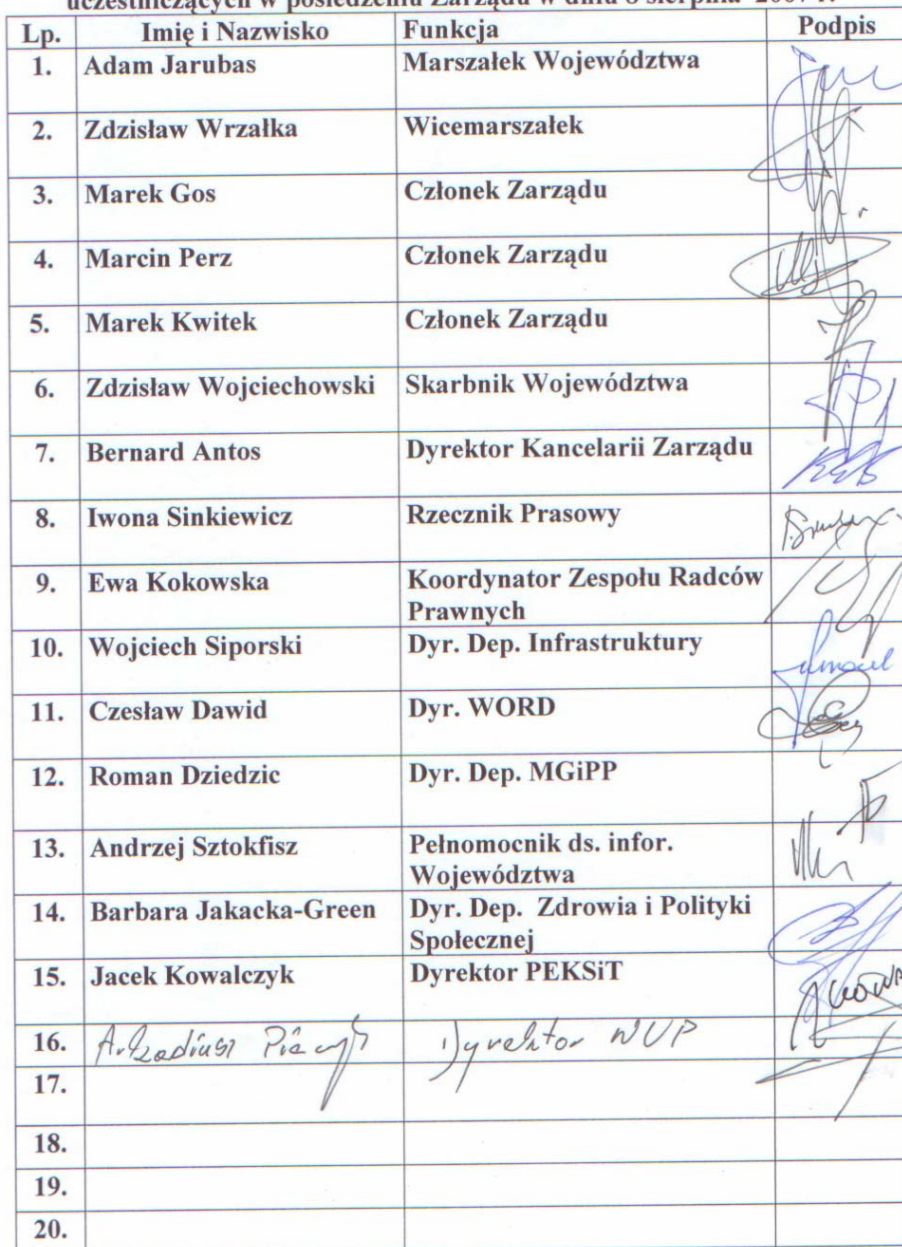 uczestniczących w posiedzeniu Zarządu w dniu 8 sierpnia 2007 r.
Lp. Imię i Nazwisko Funkcja Podpis
1. Adam Jarubas Marszałek Województwa
2. Zdzisław Wrzałka Wicemarszałek
3. Marek Gos Członek Zarządu
4. Marcin Perz Członek Zarządu
5. Marek Kwitek Członek Zarządu
6. Zdzisław Wojciechowski Skarbnik Województwa
7. Bernard Antos Dyrektor Kancelarii Zarządu
8. Iwona Sinkiewicz Rzecznik Prasowy
9. Ewa Kokowska Koordynator Zespołu Radców
Prawnych
10. Wojciech Siporski Dyr. Dep. Infrastruktury
11. Czesław Dawid Dyr. WORD
12. Roman Dziedzic Dyr. Dep. MGiPP
13. Andrzej Sztokfisz Pełnomocnik ds. infor.
Województwa
14. Barbara Jakacka-Green Dyr. Dep. Zdrowia i Polityki
Społecznej
15. Jacek Kowalczyk Dyrektor PEKSiT
16. Arkadiusz Dyrektor WUP
17.
18.
19.
20.